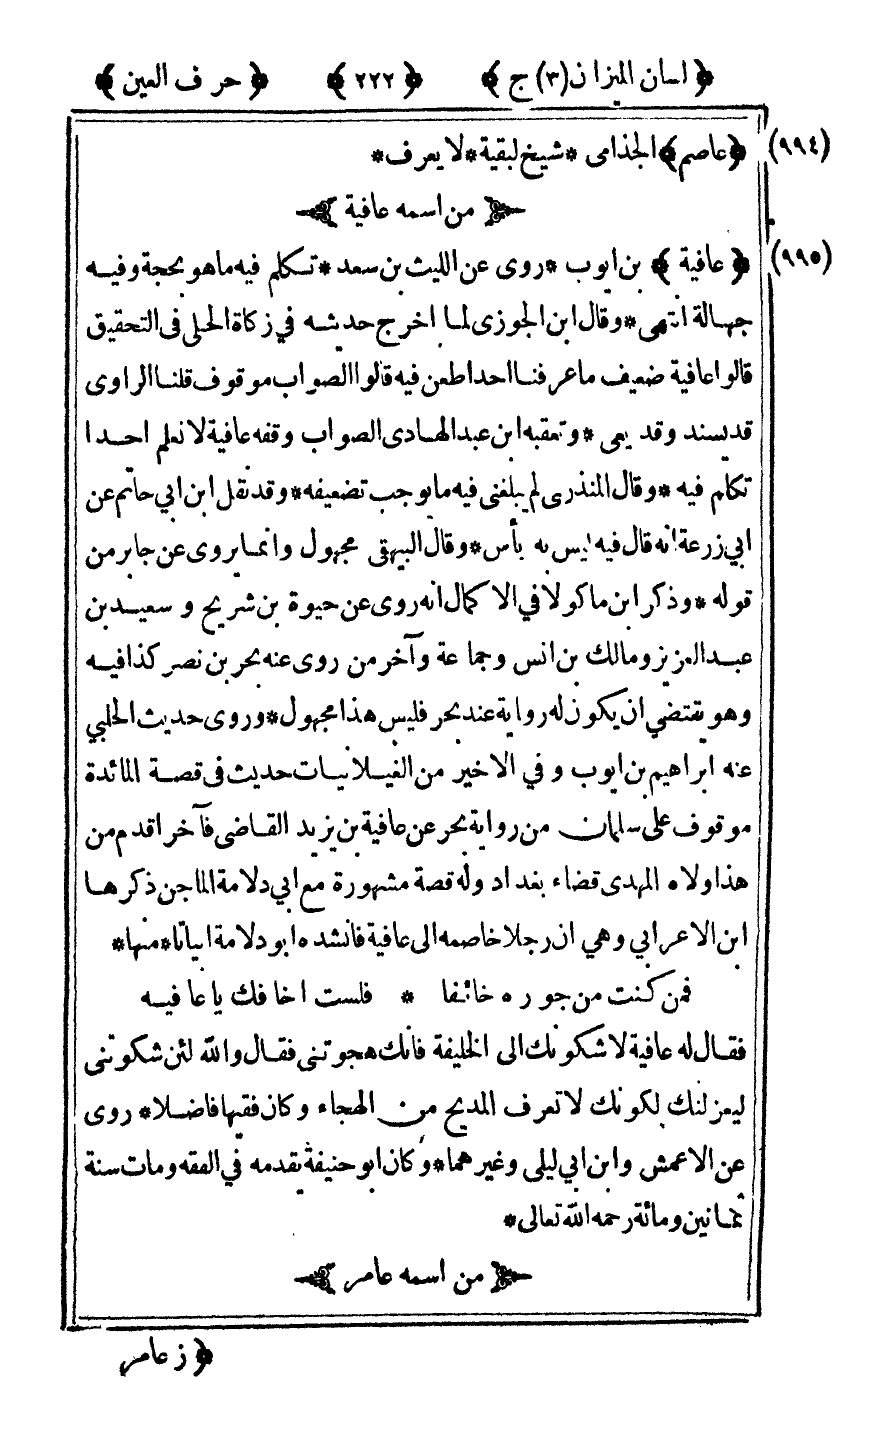 ﴿ لسان الميزان (٣) ج ﴾ ﴿ ٢٢٢ ﴾ ﴿ حرف العين ﴾
(٩٩٤) ﴿ عاصم ﴾ الجذامى * شيخ لبقية * لا يعرف *
من اسمه عافية
(٩٩٥) ﴿ عافية ﴾ بن ايوب * روى عن الليث بن سعد * تكلم فيه ما هو بحجة وفيه
جهالة انتهى * وقال ابن الجوزى لما اخرج حديثه في زكاة الحلى فى التحقيق
قالوا عافية ضعيف ما عرفنا احدا طعن فيه قالوا الصواب موقوف قلنا الراوى
قد يسند وقد يعى * وتعقبه ابن عبد الهادى الصواب وقفه عافية لا نعلم احدا
تكلم فيه * وقال المنذرى لم يبلغنى فيه ما يوجب تضعيفه * وقد نقل ابن ابي حاتم عن
ابي زرعة انه قال فيه ليس به بأس * وقال البيهقى مجهول وانما يروى عن جابر من
قوله * وذكر ابن ماكولا في الاكمال انه روى عن حيوة بن شريح و سعيد بن
عبد العزيز ومالك بن انس وجماعة وآخر من روى عنه بحر بن نصر كذا فيه
وهو يقتضي ان يكون له رواية عند بحر فليس هذا مجهول * وروى حديث الحلي
عنه ابراهيم بن ايوب و في الاخير من الغيلانيات حديث فى قصة المائدة
موقوف على سلمان من رواية بحر عن عافية بن يزيد القاضى فآخر اقدم من
هذا ولاه المهدى قضاء بغداد وله قصة مشهورة مع ابي دلامة الماجن ذكرها
ابن الاعرابي وهي ان رجلا خاصمه الى عافية فانشده ابو دلامة ابياتا * منها *
فمن كنت من جوره خائفا * فلست اخافك يا عافيه
فقال له عافية لا شكونك الى الخليفة فانك هجوتنى فقال والله لئن شكوتنى
ليعزلنك لكونك لا تعرف المديح من الهجاء وكان فقيها فاضلا * روى
عن الاعمش وابن ابي ليلى وغيرهما * وكان ابو حنيفة يقدمه في الفقه ومات سنة
ثمانين ومائة رحمه الله تعالى *
من اسمه عامر
﴿ ز عامر